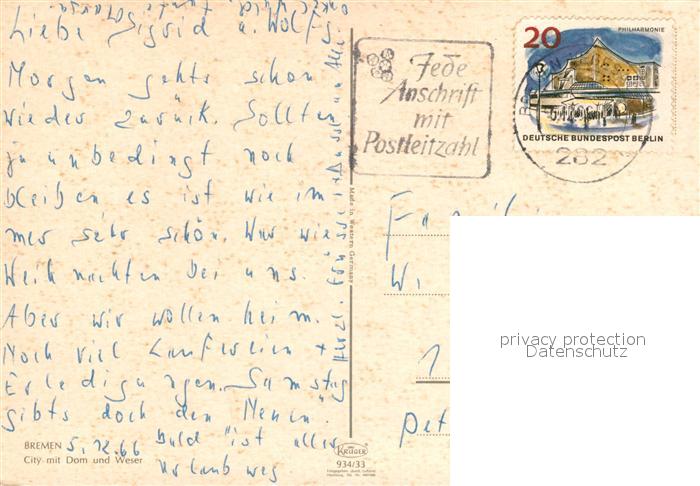 Liebe Sigrid u. Wolfg.
Morgen gehts schon
wieder zurück. Sollten
ja unbedingt noch
bleiben es ist wie im-
mer sehr schön. War wie
Weihnachten bei uns.
Aber wir wollen heim.
Noch viel Laufereien +
Erledigungen. Samstag
gibts doch den
5.12.66
ist aller
Urlaub weg
Herzl. Grüsse
an Alle
BREMEN
City mit Dom und Weser
Made in Western Germany
KRÜGER
934/33
Jede
Anschrift
mit
Postleitzahl
20
PHILHARMONIE
DEUTSCHE BUNDESPOST BERLIN
282
Familie
W
1
pet
privacy protection
Datenschutz